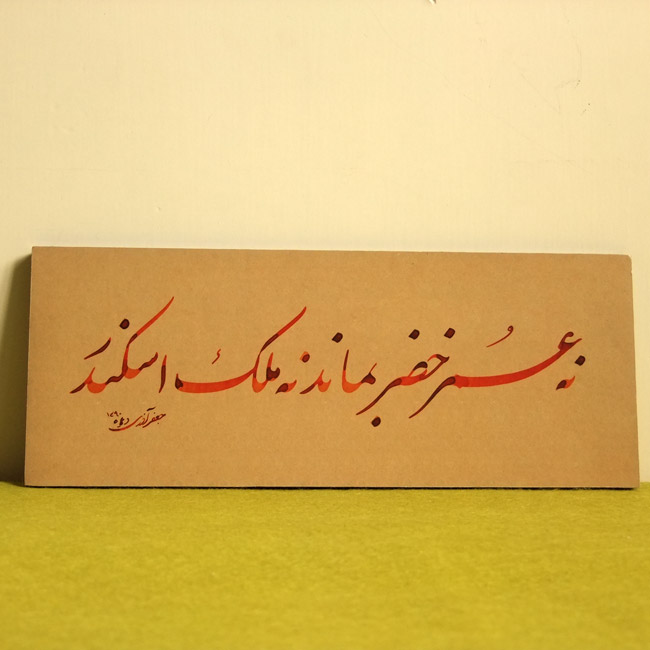 نه عُمر خضر بماند نه ملک اسکندر
جعفر آذری